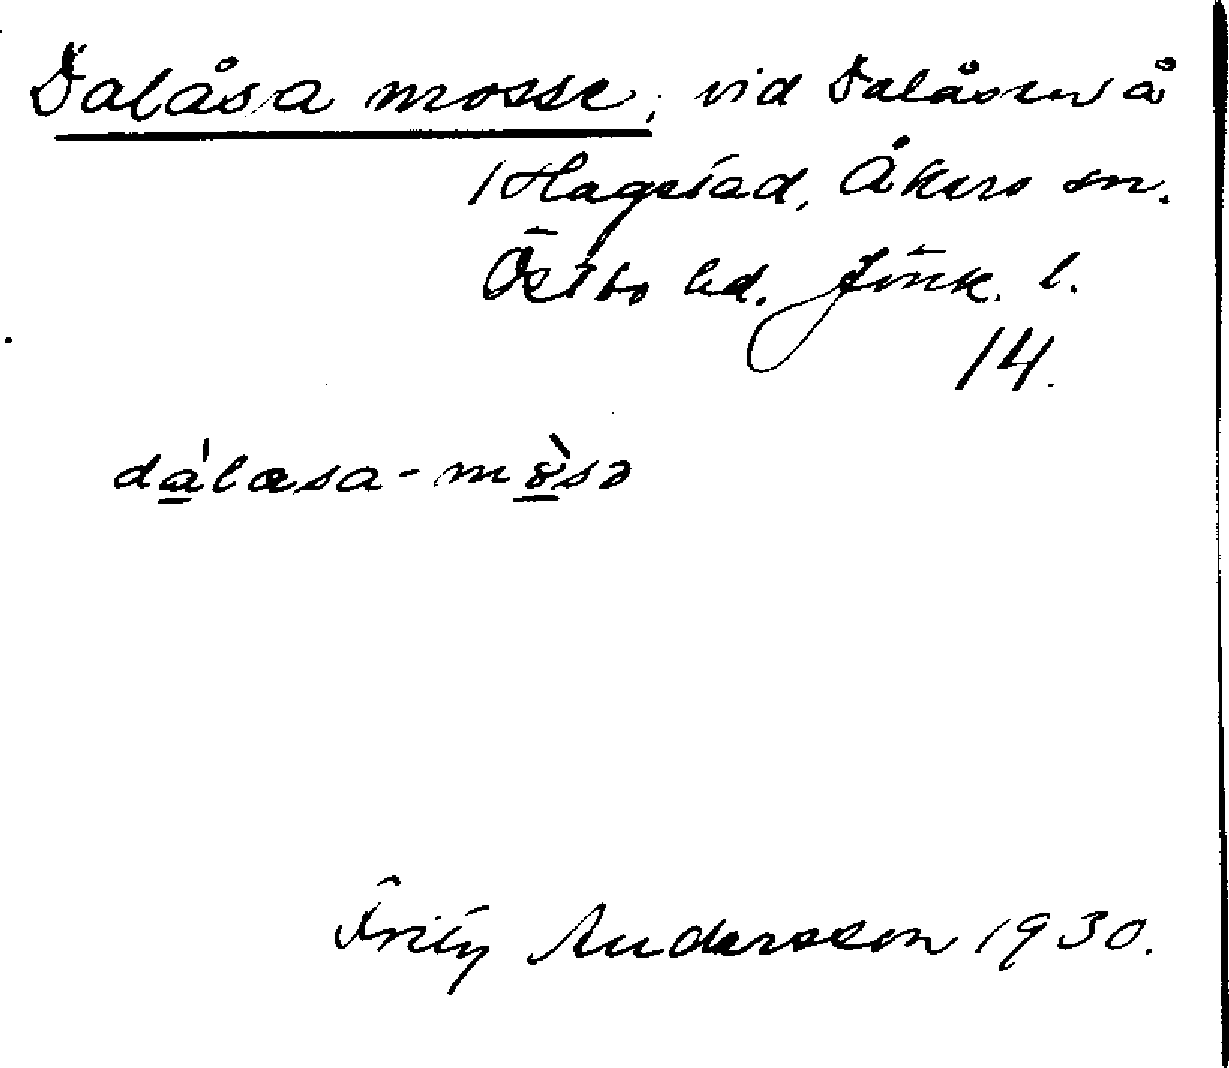 Dalåsa mosse, vid Dalåsen å
Hagstad, Åkers sn.
Östbo hd. Jönk. l.
14.
dálasa-mòsə
Fritz Andersson 1930.